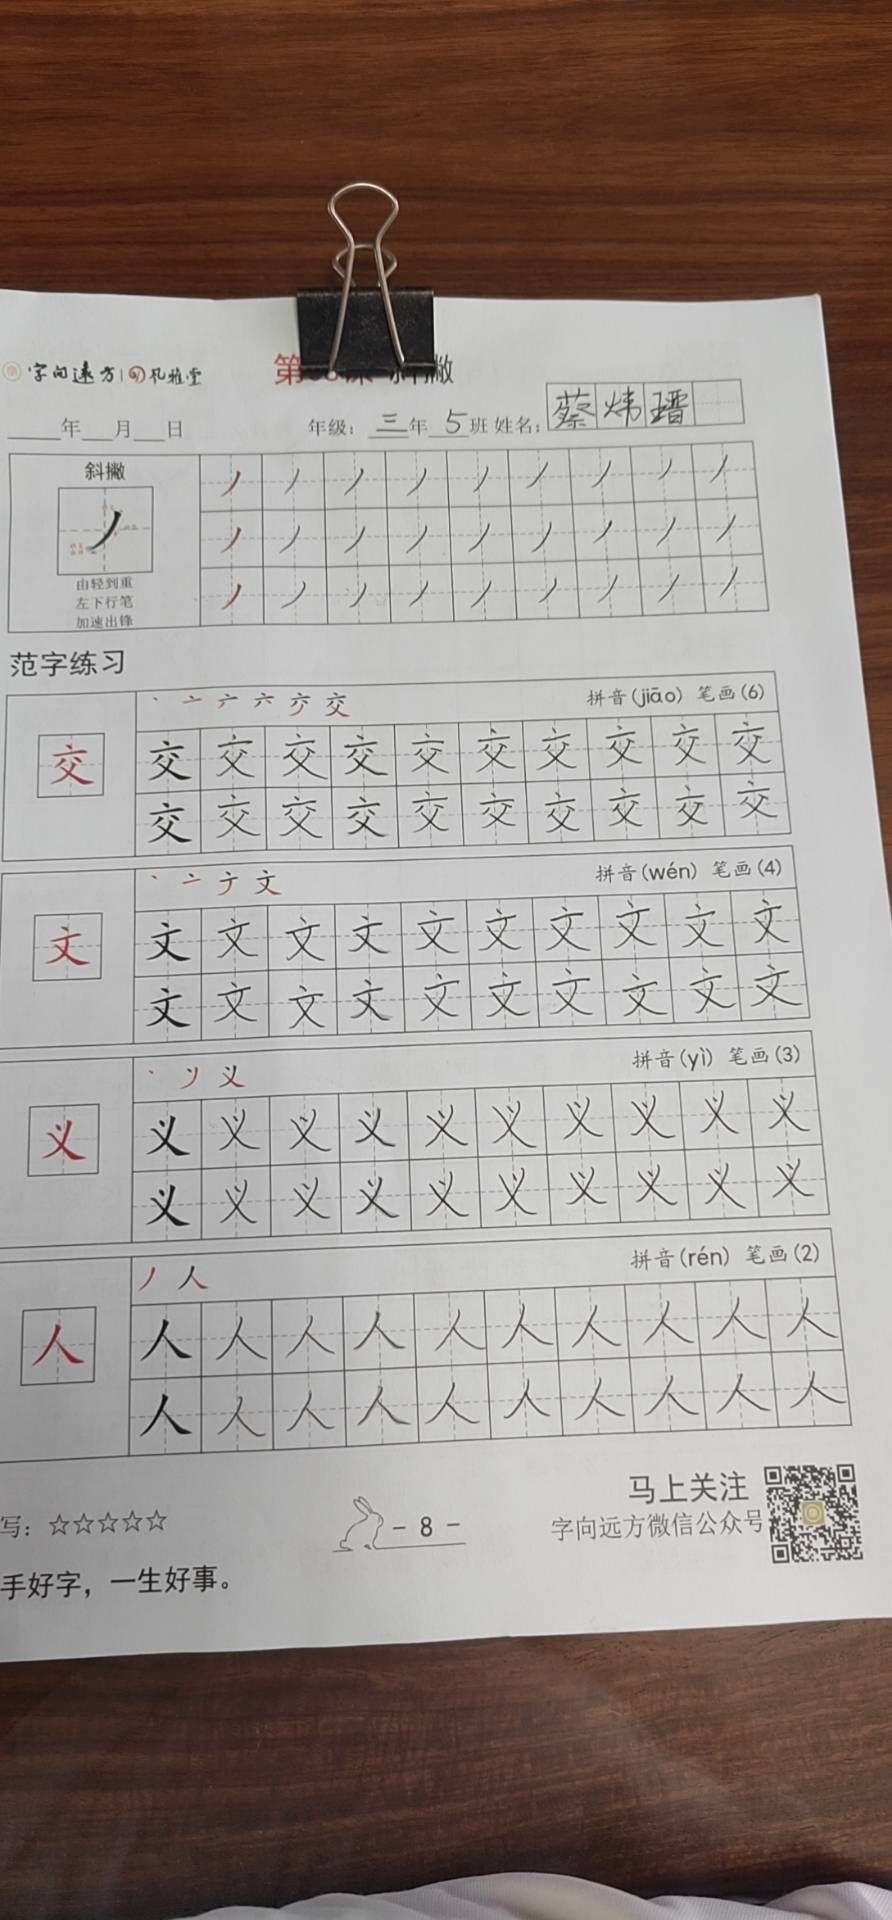 字向远方 | 孔雅堂 第 课 斜撇
年 月 日 年级: 三年 5班 姓名: 蔡炜瑨
斜撇
由轻到重
左下行笔
加速出锋
范字练习
丶 亠 六 交 拼音(jiāo) 笔画(6)
交 交 交 交 交 交 交 交 交 交 交
交 交 交 交 交 交 交 交 交 交
丶 亠 文 拼音(wén) 笔画(4)
文 文 文 文 文 文 文 文 文 文 文
文 文 文 文 文 文 文 文 文 文
丶 义 拼音(yì) 笔画(3)
义 义 义 义 义 义 义 义 义 义 义
义 义 义 义 义 义 义 义 义 义
丿 人 拼音(rén) 笔画(2)
人 人 人 人 人 人 人 人 人 人 人
人 人 人 人 人 人 人 人 人 人
马上关注
写: ☆☆☆☆☆ - 8 - 字向远方微信公众号
手好字，一生好事。